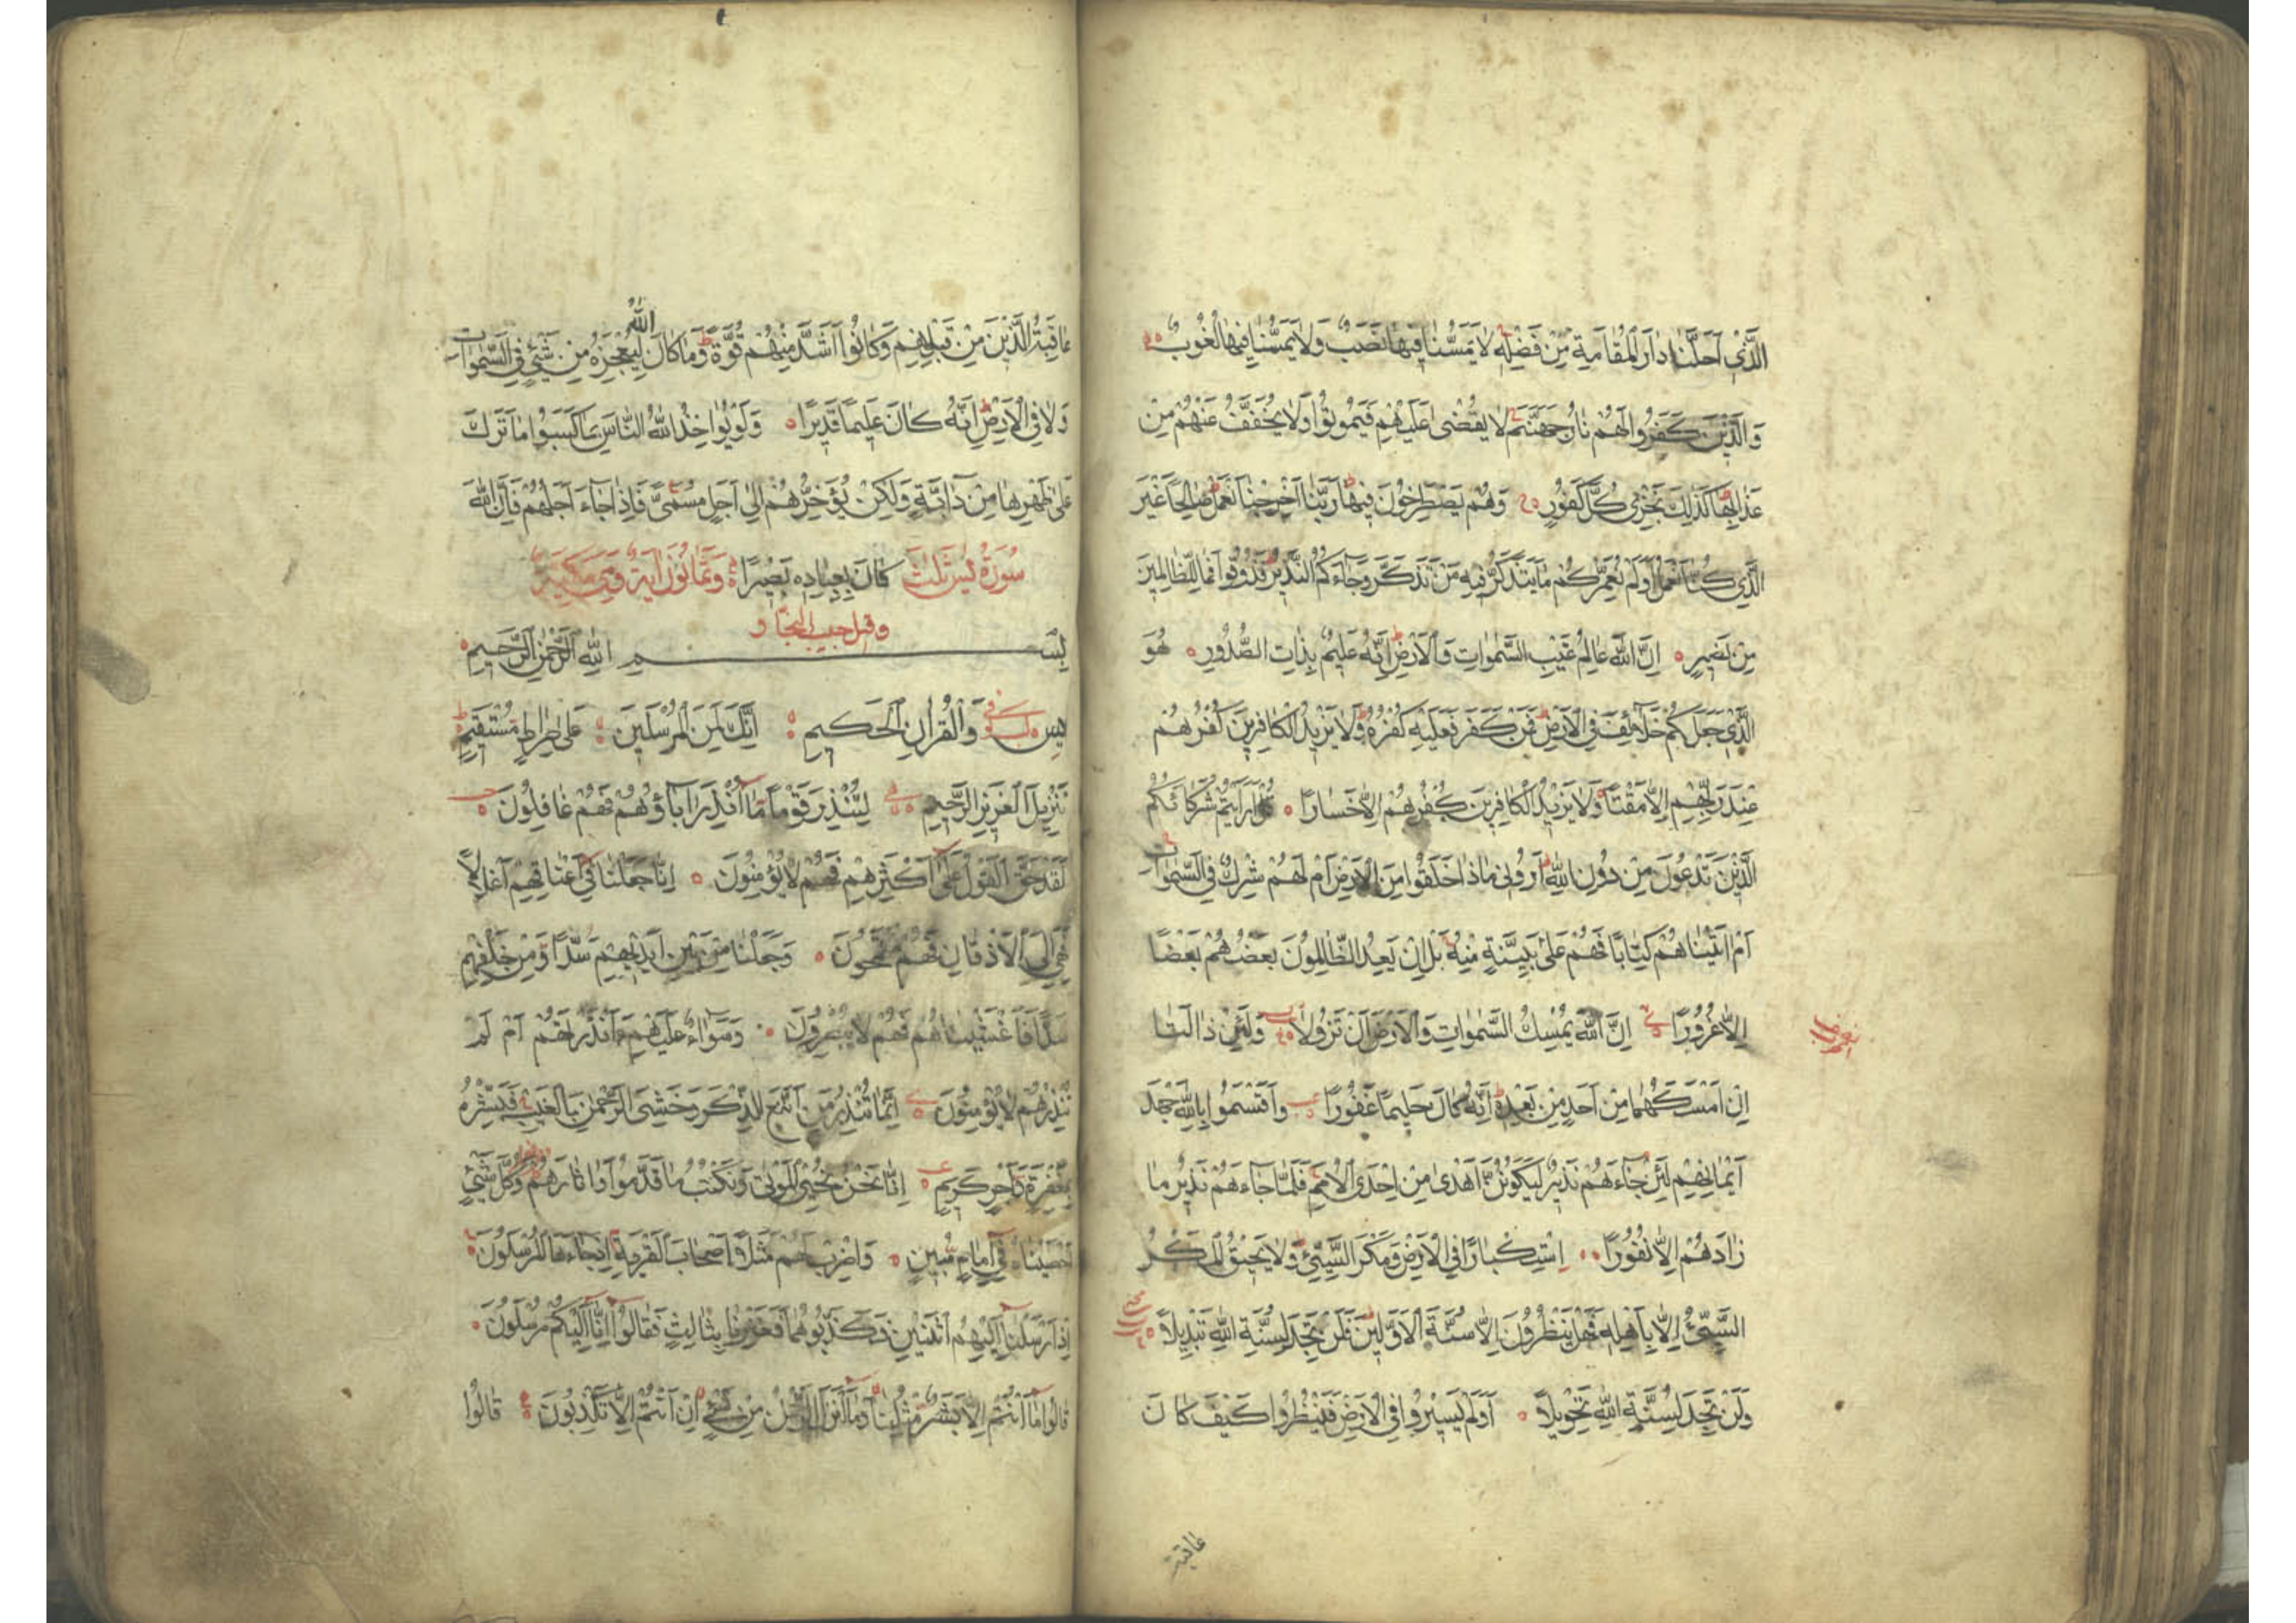 الَّذِي أَحَلَّنَا دَارَ الْمُقَامَةِ مِنْ فَضْلِهِ لَا يَمَسُّنَا فِيهَا نَصَبٌ وَلَا يَمَسُّنَا فِيهَا لُغُوبٌ
وَالَّذِينَ كَفَرُوا لَهُمْ نَارُ جَهَنَّمَ لَا يُقْضَى عَلَيْهِمْ فَيَمُوتُوا وَلَا يُخَفَّفُ عَنْهُمْ مِنْ
عَذَابِهَا كَذَلِكَ نَجْزِي كُلَّ كَفُورٍ وَهُمْ يَصْطَرِخُونَ فِيهَا رَبَّنَا أَخْرِجْنَا نَعْمَلْ صَالِحًا غَيْرَ
الَّذِي كُنَّا نَعْمَلُ أَوَلَمْ نُعَمِّرْكُمْ مَا يَتَذَكَّرُ فِيهِ مَنْ تَذَكَّرَ وَجَاءَكُمُ النَّذِيرُ فَذُوقُوا فَمَا لِلظَّالِمِينَ
مِنْ نَصِيرٍ إِنَّ اللَّهَ عَالِمُ غَيْبِ السَّمَوَاتِ وَالْأَرْضِ إِنَّهُ عَلِيمٌ بِذَاتِ الصُّدُورِ هُوَ
الَّذِي جَعَلَكُمْ خَلَائِفَ فِي الْأَرْضِ فَمَنْ كَفَرَ فَعَلَيْهِ كُفْرُهُ وَلَا يَزِيدُ الْكَافِرِينَ كُفْرُهُمْ
عِنْدَ رَبِّهِمْ إِلَّا مَقْتًا وَلَا يَزِيدُ الْكَافِرِينَ كُفْرُهُمْ إِلَّا خَسَارًا قُلْ أَرَأَيْتُمْ شُرَكَاءَكُمُ
الَّذِينَ تَدْعُونَ مِنْ دُونِ اللَّهِ أَرُونِي مَاذَا خَلَقُوا مِنَ الْأَرْضِ أَمْ لَهُمْ شِرْكٌ فِي السَّمَوَاتِ
أَمْ آتَيْنَاهُمْ كِتَابًا فَهُمْ عَلَى بَيِّنَةٍ مِنْهُ بَلْ إِنْ يَعِدُ الظَّالِمُونَ بَعْضُهُمْ بَعْضًا
إِلَّا غُرُورًا إِنَّ اللَّهَ يُمْسِكُ السَّمَوَاتِ وَالْأَرْضَ أَنْ تَزُولَا وَلَئِنْ زَالَتَا
إِنْ أَمْسَكَهُمَا مِنْ أَحَدٍ مِنْ بَعْدِهِ إِنَّهُ كَانَ حَلِيمًا غَفُورًا وَأَقْسَمُوا بِاللَّهِ جَهْدَ
أَيْمَانِهِمْ لَئِنْ جَاءَهُمْ نَذِيرٌ لَيَكُونُنَّ أَهْدَى مِنْ إِحْدَى الْأُمَمِ فَلَمَّا جَاءَهُمْ نَذِيرٌ مَا
زَادَهُمْ إِلَّا نُفُورًا اسْتِكْبَارًا فِي الْأَرْضِ وَمَكْرَ السَّيِّئِ وَلَا يَحِيقُ الْمَكْرُ
السَّيِّئُ إِلَّا بِأَهْلِهِ فَهَلْ يَنْظُرُونَ إِلَّا سُنَّةَ الْأَوَّلِينَ فَلَنْ تَجِدَ لِسُنَّةِ اللَّهِ تَبْدِيلًا
وَلَنْ تَجِدَ لِسُنَّةِ اللَّهِ تَحْوِيلًا أَوَلَمْ يَسِيرُوا فِي الْأَرْضِ فَيَنْظُرُوا كَيْفَ كَانَ
عاقبة
عَاقِبَةُ الَّذِينَ مِنْ قَبْلِهِمْ وَكَانُوا أَشَدَّ مِنْهُمْ قُوَّةً وَمَا كَانَ اللَّهُ لِيُعْجِزَهُ مِنْ شَيْءٍ فِي السَّمَوَاتِ
وَلَا فِي الْأَرْضِ إِنَّهُ كَانَ عَلِيمًا قَدِيرًا وَلَوْ يُؤَاخِذُ اللَّهُ النَّاسَ بِمَا كَسَبُوا مَا تَرَكَ
عَلَى ظَهْرِهَا مِنْ دَابَّةٍ وَلَكِنْ يُؤَخِّرُهُمْ إِلَى أَجَلٍ مُسَمًّى فَإِذَا جَاءَ أَجَلُهُمْ فَإِنَّ اللَّهَ
سُورَةُ يس ثَلَثٌ كَانَ بِعِبَادِهِ بَصِيرًا وَثَمَانُونَ آيَةً وَهِيَ مَكِّيَّةٌ
بِسْمِ اللَّهِ الرَّحْمَنِ الرَّحِيمِ
يس وَالْقُرْآنِ الْحَكِيمِ إِنَّكَ لَمِنَ الْمُرْسَلِينَ عَلَى صِرَاطٍ مُسْتَقِيمٍ
تَنْزِيلَ الْعَزِيزِ الرَّحِيمِ لِتُنْذِرَ قَوْمًا مَا أُنْذِرَ آبَاؤُهُمْ فَهُمْ غَافِلُونَ
لَقَدْ حَقَّ الْقَوْلُ عَلَى أَكْثَرِهِمْ فَهُمْ لَا يُؤْمِنُونَ إِنَّا جَعَلْنَا فِي أَعْنَاقِهِمْ أَغْلَالًا
فَهِيَ إِلَى الْأَذْقَانِ فَهُمْ مُقْمَحُونَ وَجَعَلْنَا مِنْ بَيْنِ أَيْدِيهِمْ سَدًّا وَمِنْ خَلْفِهِمْ
سَدًّا فَأَغْشَيْنَاهُمْ فَهُمْ لَا يُبْصِرُونَ وَسَوَاءٌ عَلَيْهِمْ أَأَنْذَرْتَهُمْ أَمْ لَمْ
تُنْذِرْهُمْ لَا يُؤْمِنُونَ إِنَّمَا تُنْذِرُ مَنِ اتَّبَعَ الذِّكْرَ وَخَشِيَ الرَّحْمَنَ بِالْغَيْبِ فَبَشِّرْهُ
بِمَغْفِرَةٍ وَأَجْرٍ كَرِيمٍ إِنَّا نَحْنُ نُحْيِي الْمَوْتَى وَنَكْتُبُ مَا قَدَّمُوا وَآثَارَهُمْ وَكُلَّ شَيْءٍ
أَحْصَيْنَاهُ فِي إِمَامٍ مُبِينٍ وَاضْرِبْ لَهُمْ مَثَلًا أَصْحَابَ الْقَرْيَةِ إِذْ جَاءَهَا الْمُرْسَلُونَ
إِذْ أَرْسَلْنَا إِلَيْهِمُ اثْنَيْنِ فَكَذَّبُوهُمَا فَعَزَّزْنَا بِثَالِثٍ فَقَالُوا إِنَّا إِلَيْكُمْ مُرْسَلُونَ
قَالُوا مَا أَنْتُمْ إِلَّا بَشَرٌ مِثْلُنَا وَمَا أَنْزَلَ الرَّحْمَنُ مِنْ شَيْءٍ إِنْ أَنْتُمْ إِلَّا تَكْذِبُونَ قَالُوا